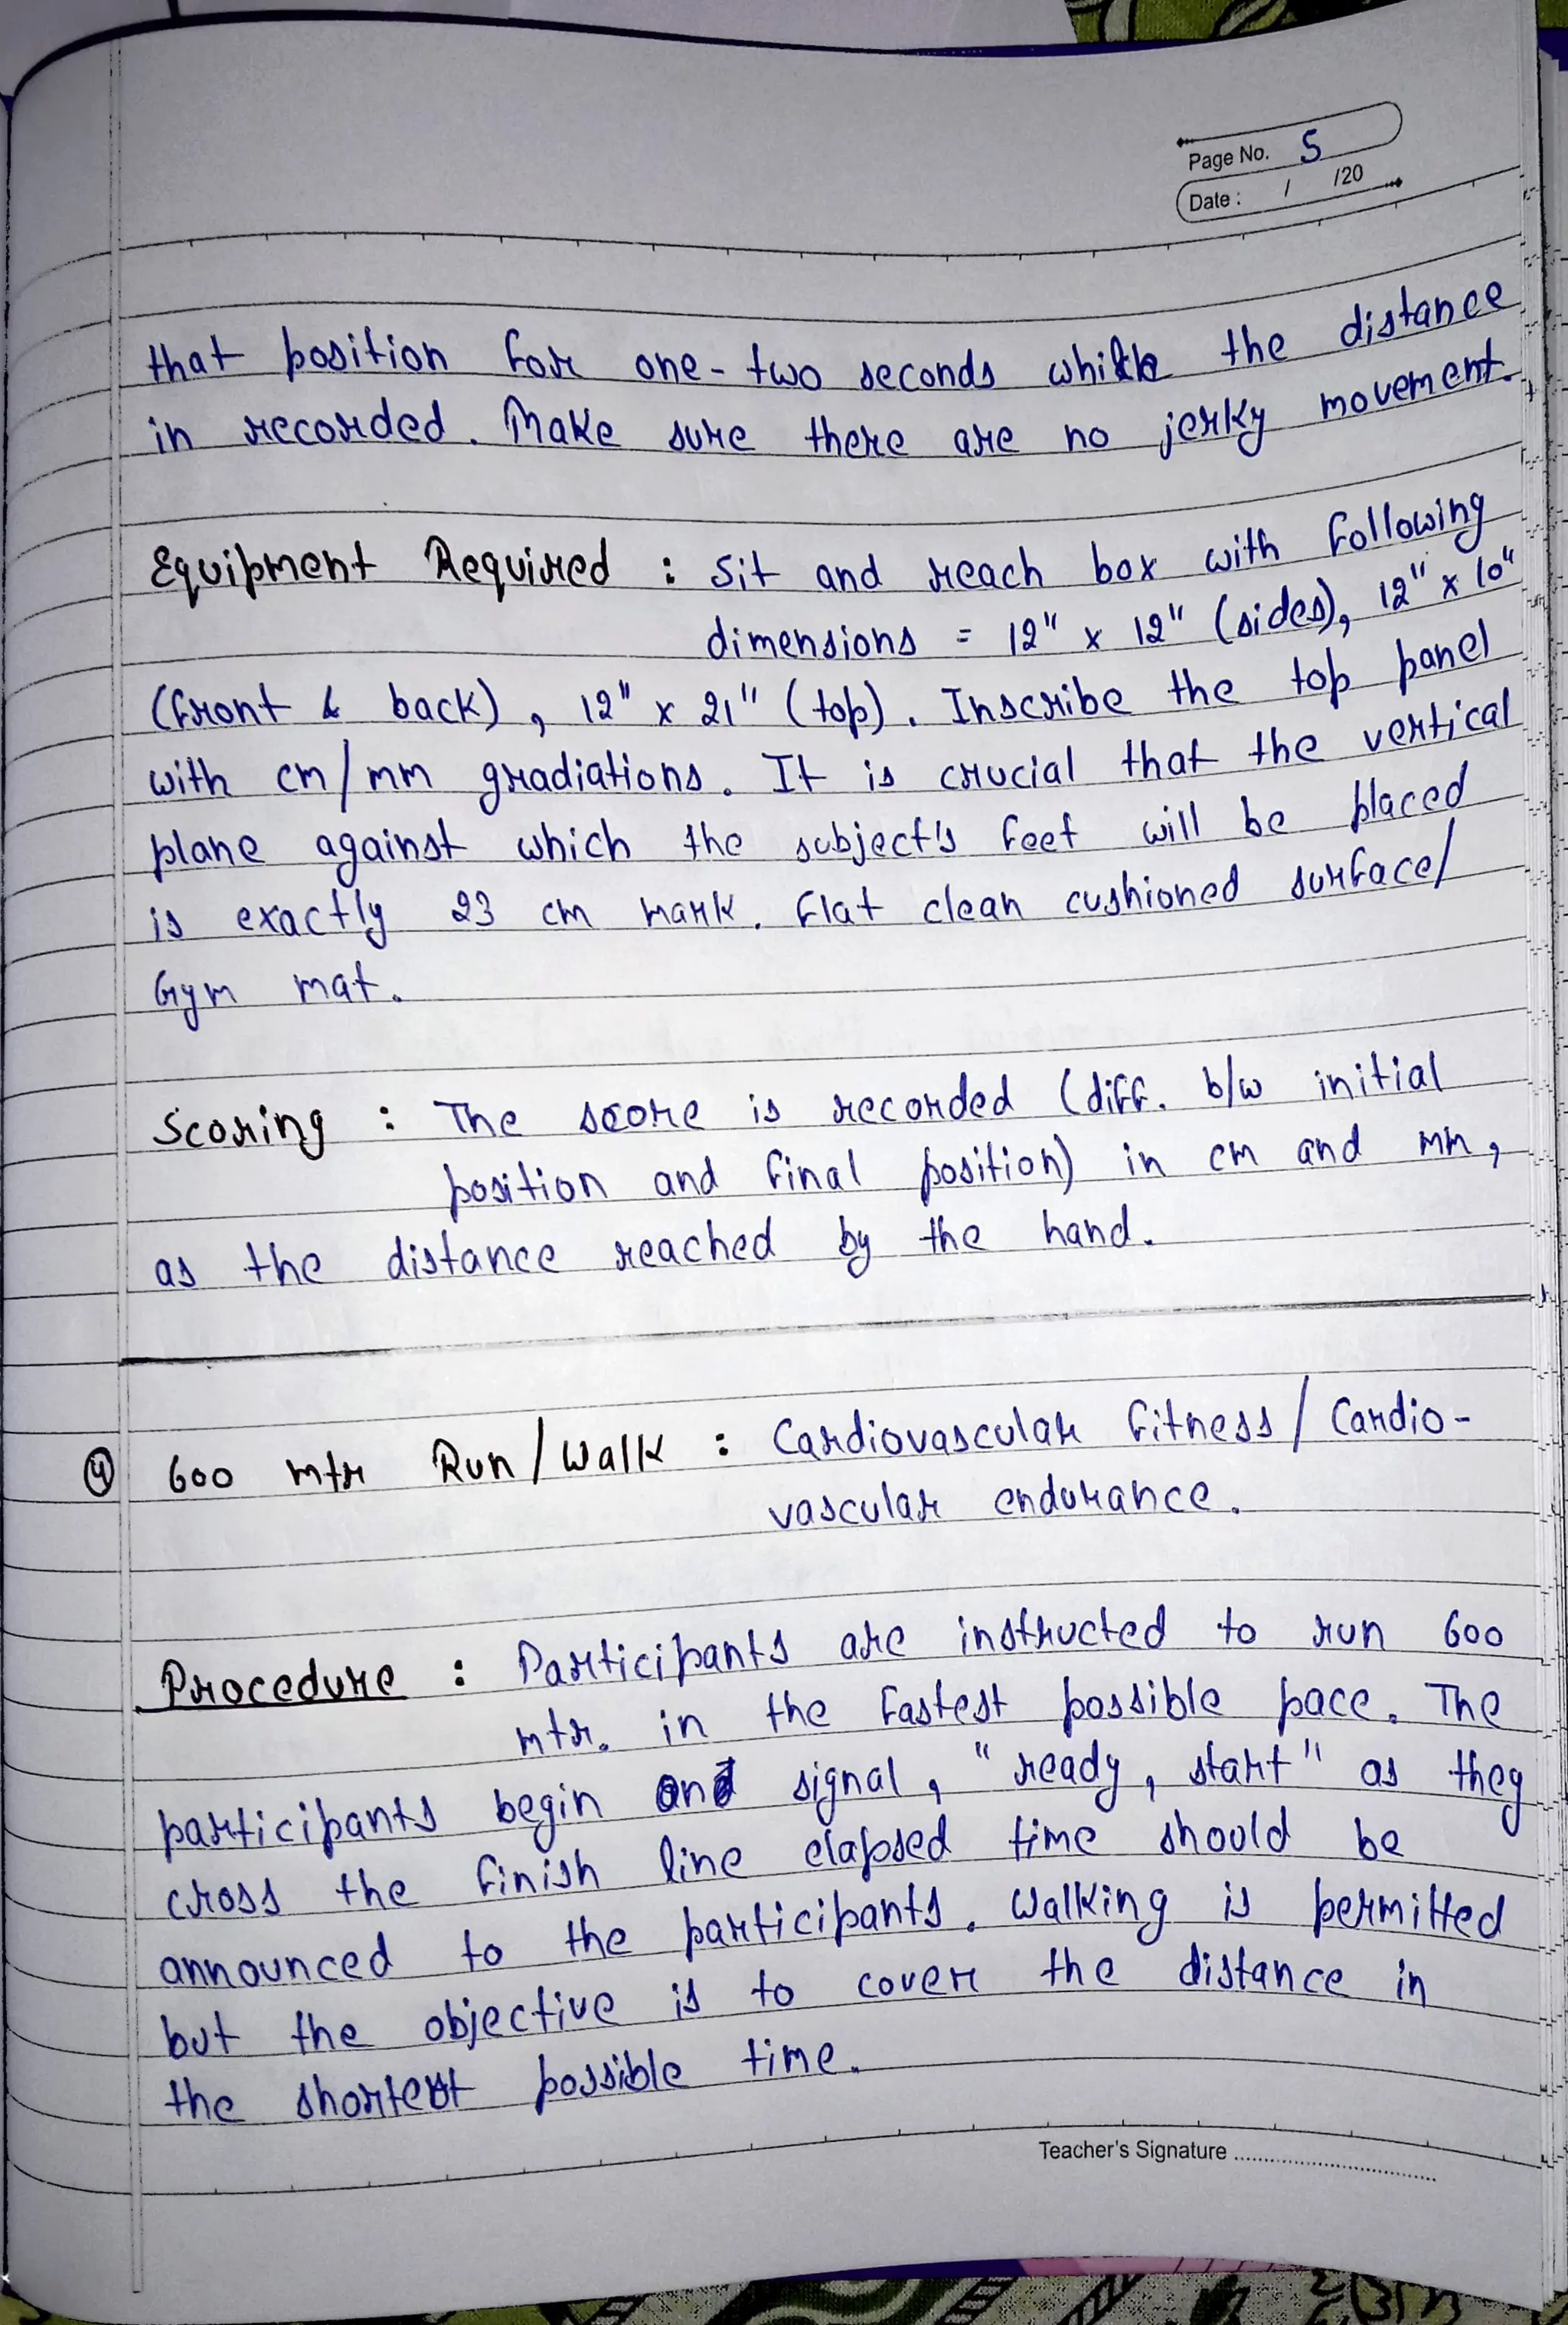 Page No. 5
Date : / /20
that position for one-two seconds while the distance
in recorded. Make sure there are no jerky movement.
Equipment Required : Sit and reach box with following
dimensions = 12" x 12" (sides), 12" x 10"
(front & back), 12" x 21" (top). Inscribe the top panel
with cm/mm gradiations. It is crucial that the vertical
plane against which the subject's feet will be placed
is exactly 23 cm mark. Flat clean cushioned surface/
Gym mat.
Scoring : The score is recorded (diff. b/w initial
position and final position) in cm and mm,
as the distance reached by the hand.
4 600 mtr Run/Walk : Cardiovascular fitness/Cardio-
vascular endurance.
Procedure : Participants are instructed to run 600
mtr. in the fastest possible pace. The
participants begin on signal, "ready, start" as they
cross the finish line elapsed time should be
announced to the participants. Walking is permitted
but the objective is to cover the distance in
the shortest possible time.
Teacher's Signature ....................